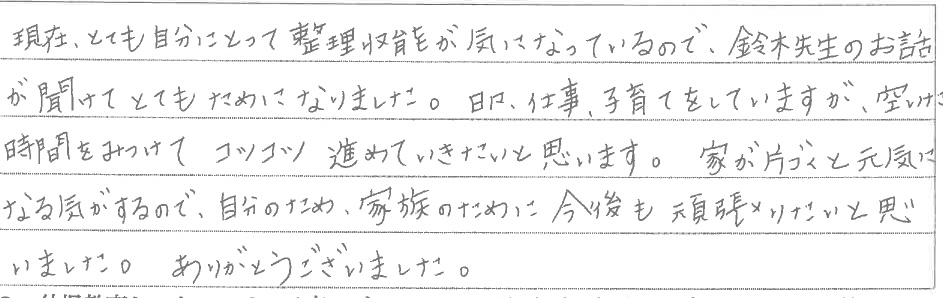 現在、とても自分にとって整理収能が気になっているので、鈴木先生のお話
が聞けてとてもためになりました。日々、仕事、子育てをしていますが、空いた
時間をみつけて コツコツ 進めていきたいと思います。 家が片づくと元気に
なる気がするので、自分のため、家族のために今後も頑張りたいと思
いました。 ありがとうございました。